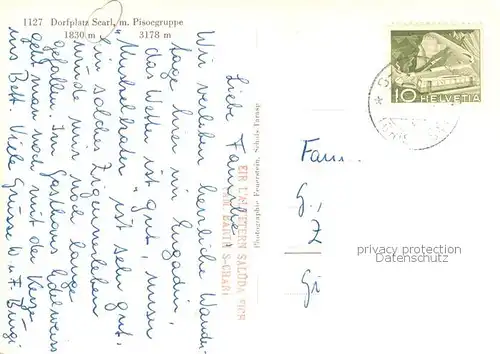 1127 Dorfplatz Scarl, m. Pisocgruppe
1830 m 3178 m
HELVETIA
10
Liebe Familie
Wir verleben herrliche Wander-
tage hier im Engadin,
das Wetter ist gut, unser
"Muskelkater" ist sehr gut.
ein solches Zigeunerleben
würde mir noch lange
gefallen. Im Gasthaus Edelweiss
geht man noch mit der Kerze
ins Bett. Viele Grüsse W. u. F. Bürgi
Photographie Feuerstein, Schuls-Tarasp
S-CHARL
Fam.
G.,
Z
Gi
privacy protection
Datenschutz